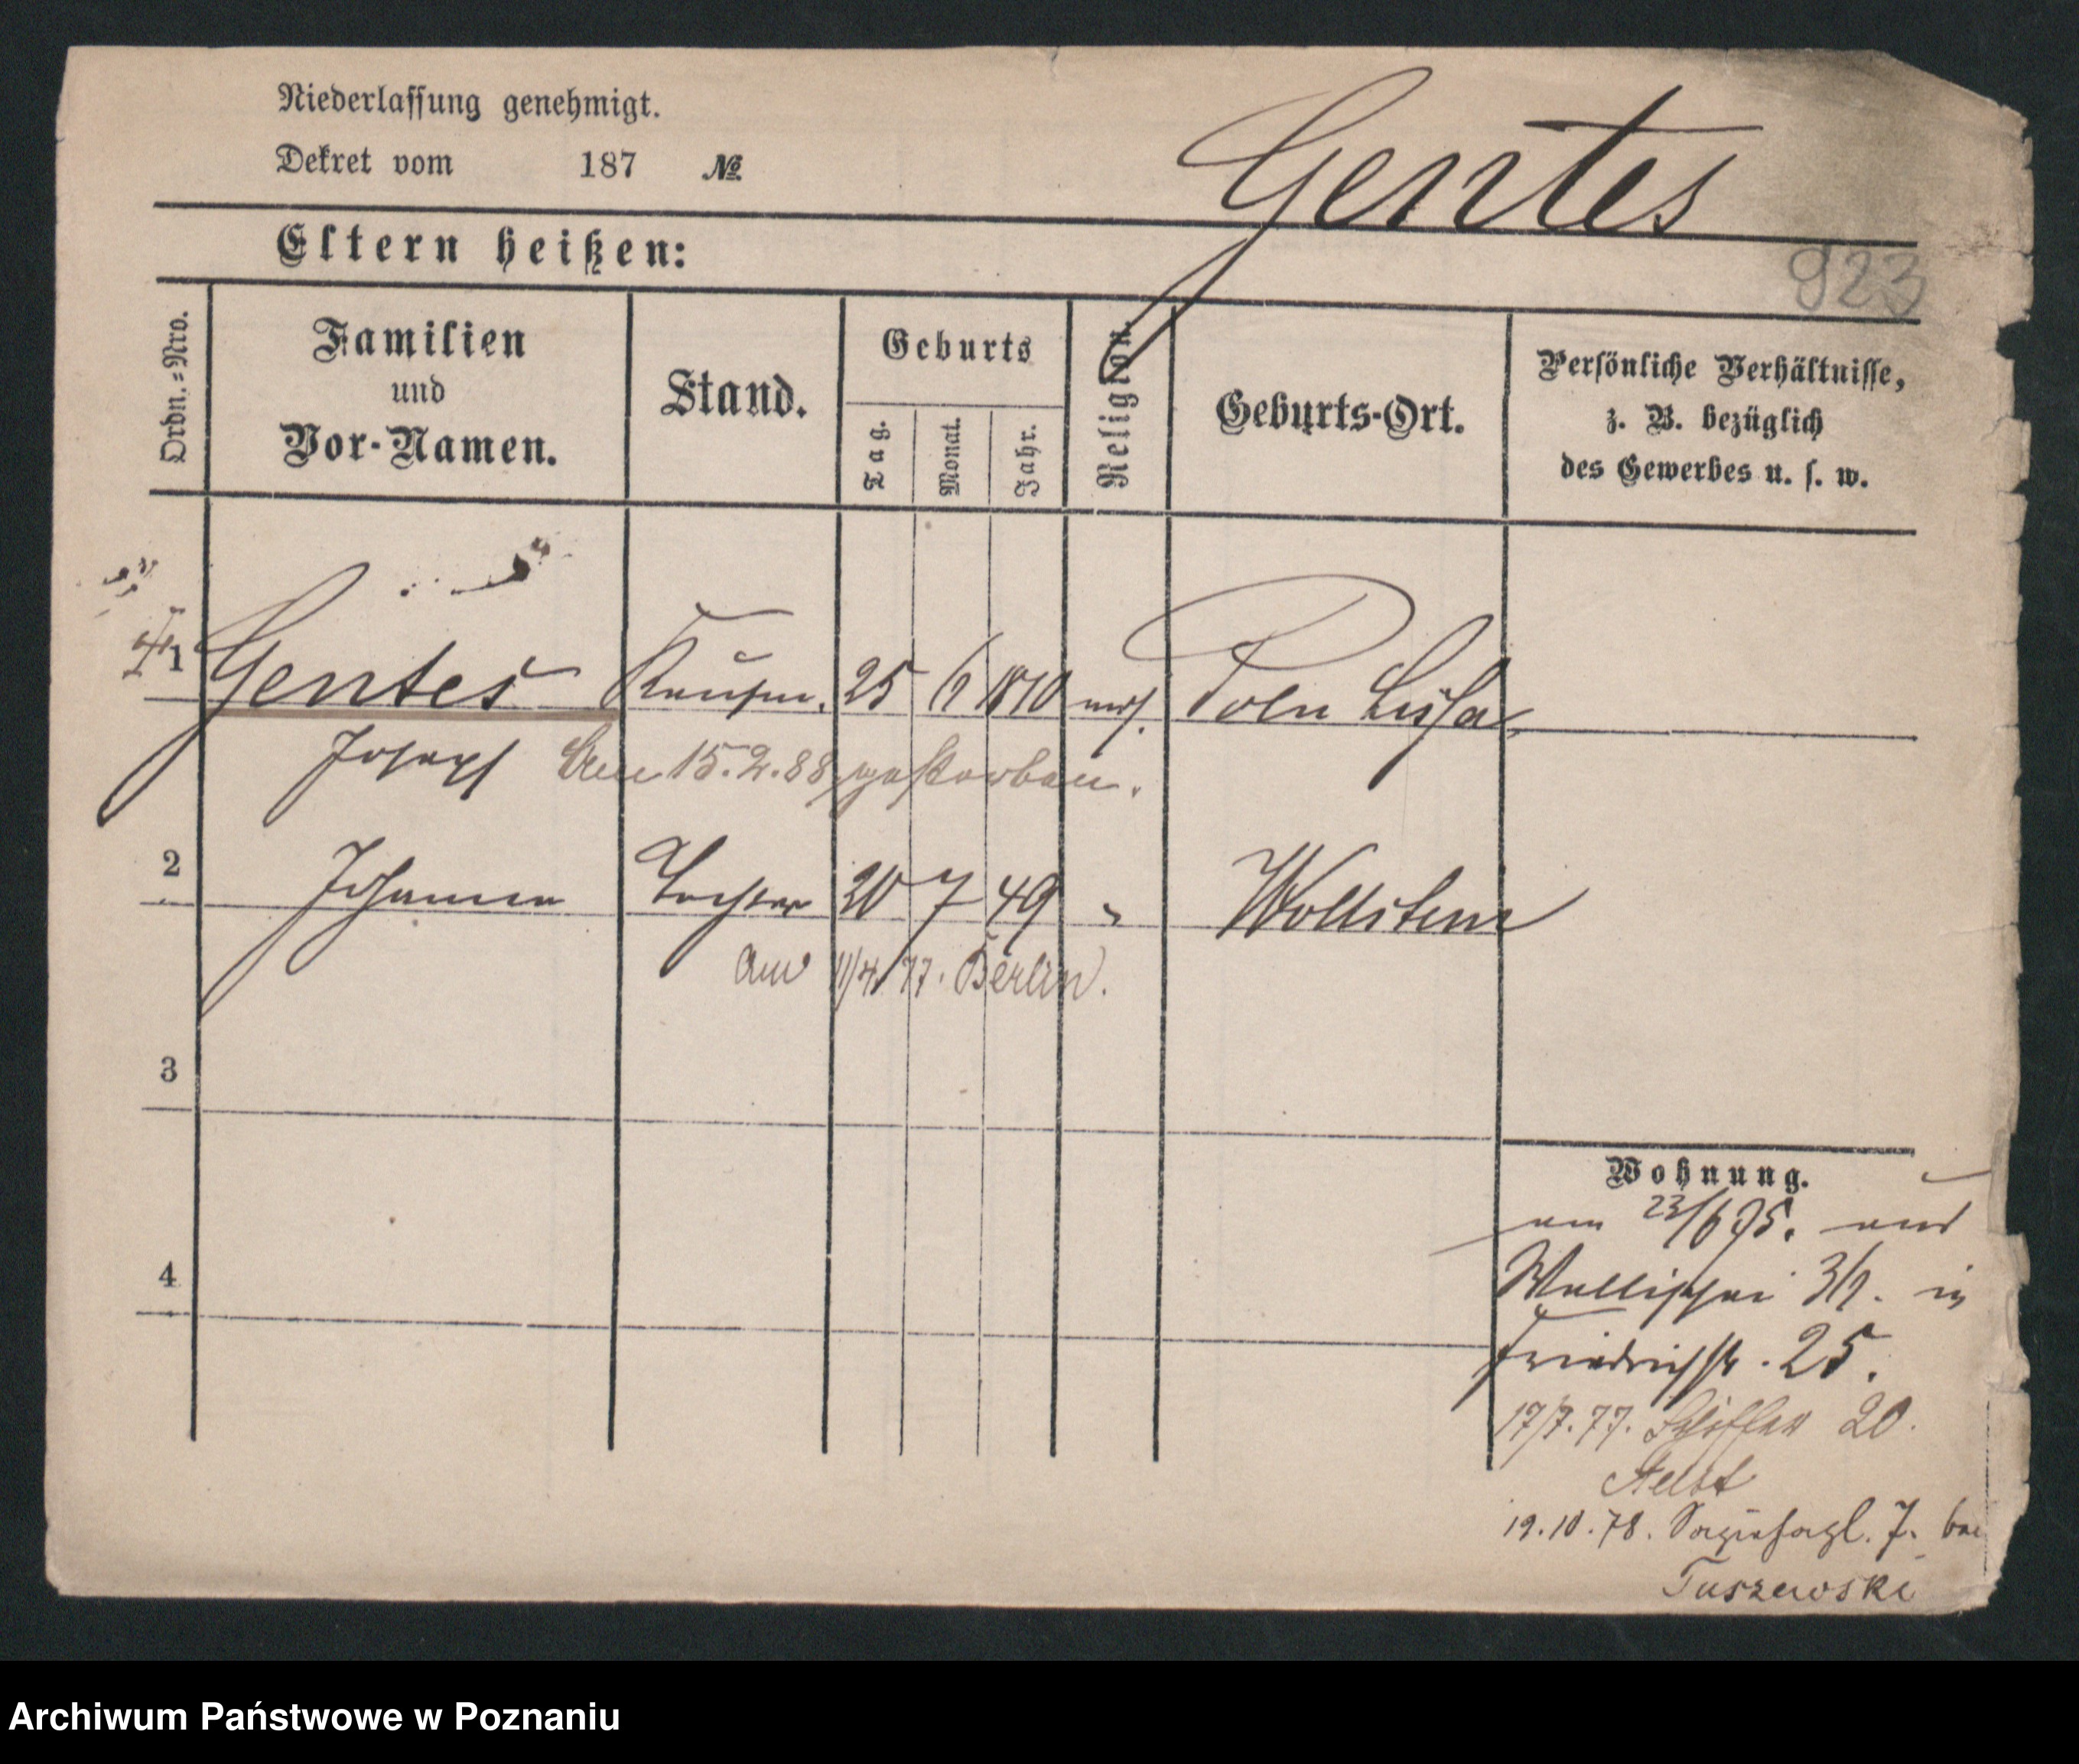 Niederlassung genehmigt.
Dekret vom 187 №
Gentes
Eltern heißen:
923
Ordn.-Nro.
Familien
und
Vor-Namen.
Stand.
Geburts
Tag.
Monat.
Jahr.
Religion.
Geburts-Ort.
Persönliche Verhältnisse,
z. B. bezüglich
des Gewerbes u. s. w.
1 Gentes Kaufm. 25 1810 mos. Poln Lissa
Joseph Am 15.2.88 gestorben.
2 Johanna Tochter 20 7 49 " Wollstein
am 11/4 77. Berlin.
3
Wohnung.
am 23/6 75. aus
4
Wallischei in
Friedrichstr. 25.
17/7. 77. 20.
19.10.78. 7. bei
Tuszewski
Archiwum Państwowe w Poznaniu